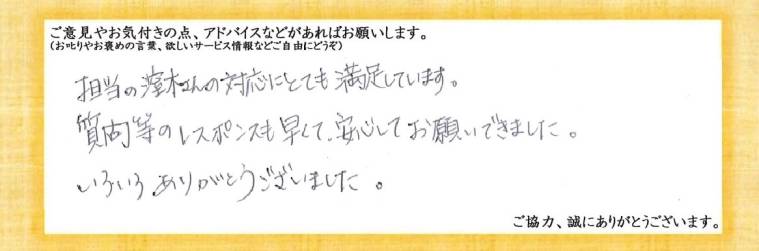 ご意見やお気付きの点、アドバイスなどがあればお願いします。
(お叱りやお褒めの言葉、欲しいサービス情報などご自由にどうぞ)
担当の澤木さんの対応にとても満足しています。
質問等のレスポンスも早くて、安心してお願いできました。
いろいろありがとうございました。
ご協力、誠にありがとうございます。